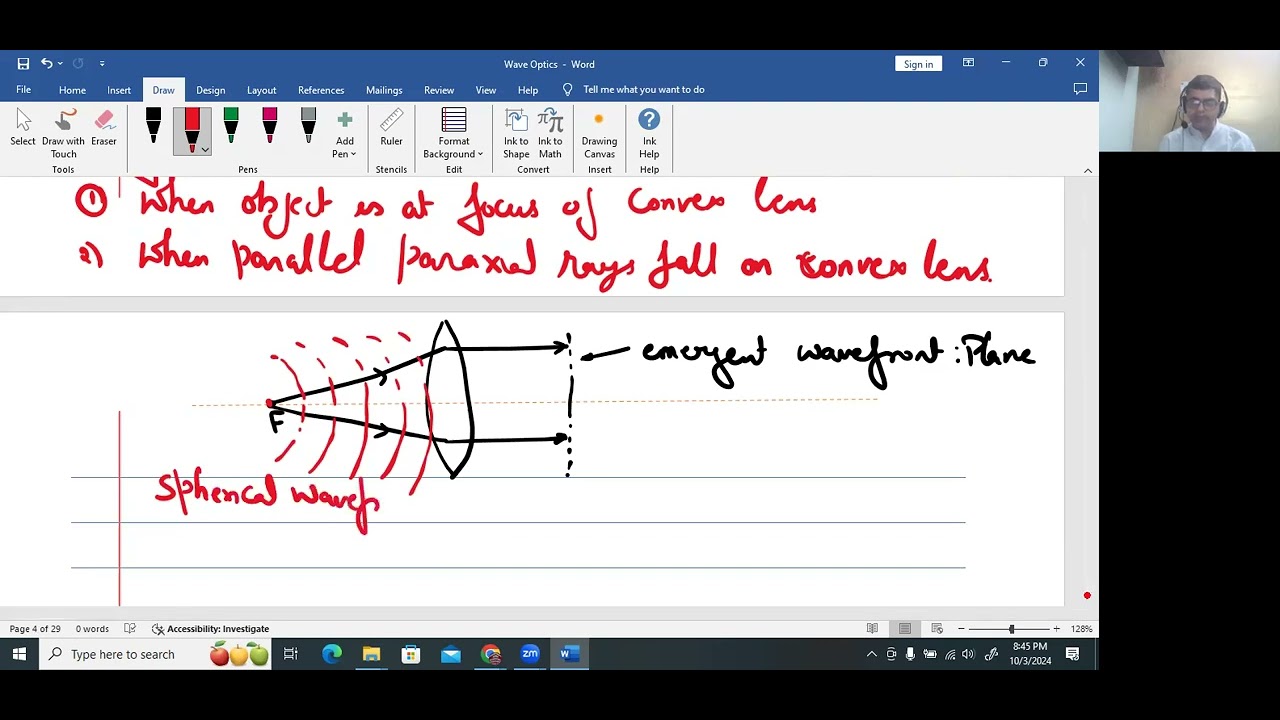 Wave Optics - Word
Sign in
File Home Insert Draw Design Layout References Mailings Review View Help Tell me what you want to do
Select Draw with Touch Eraser Add Pen Ruler Format Background Ink to Shape Ink to Math Drawing Canvas Ink Help
Tools Pens Stencils Edit Convert Insert Help
① When object is at focus of convex lens
2) When parallel paraxial rays fall on convex lens.
emergent wavefront : Plane
F
Spherical wavef
Page 4 of 29 0 words Accessibility: Investigate 128%
Type here to search
zm
8:45 PM
10/3/2024